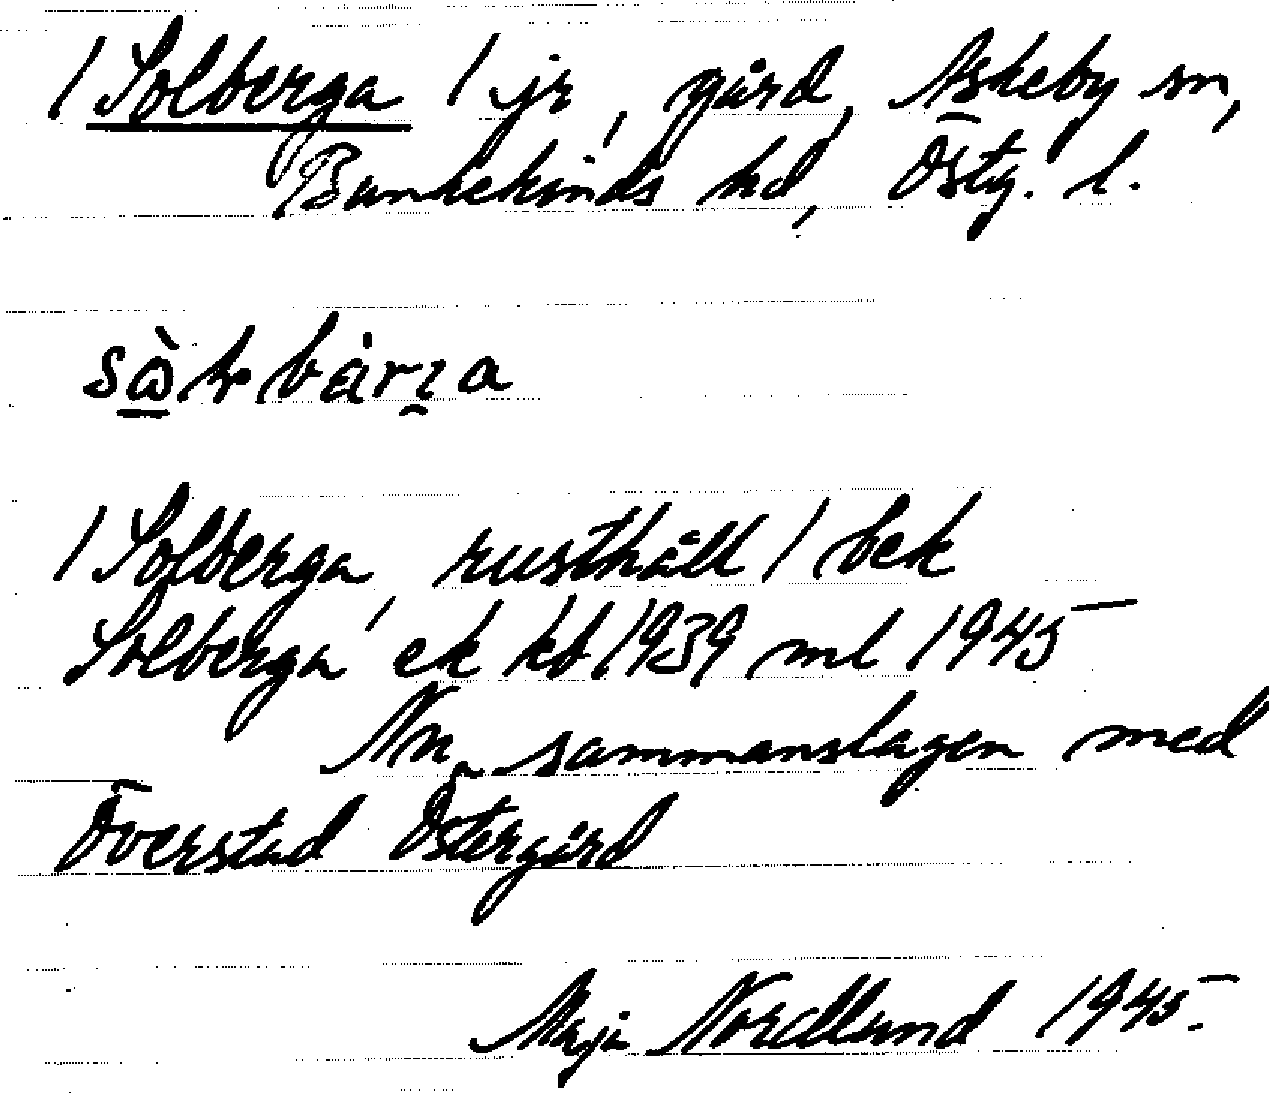 / Solberga / jr, gård, Askeby sn,
Bankekinds hd, Östg. l.
/ Solberga, rusthåll / bek
Solberga ek kb 1939 ml 1945
Nu sammanslagen med
Överstad Östergård
Maja Nordlund 1945.